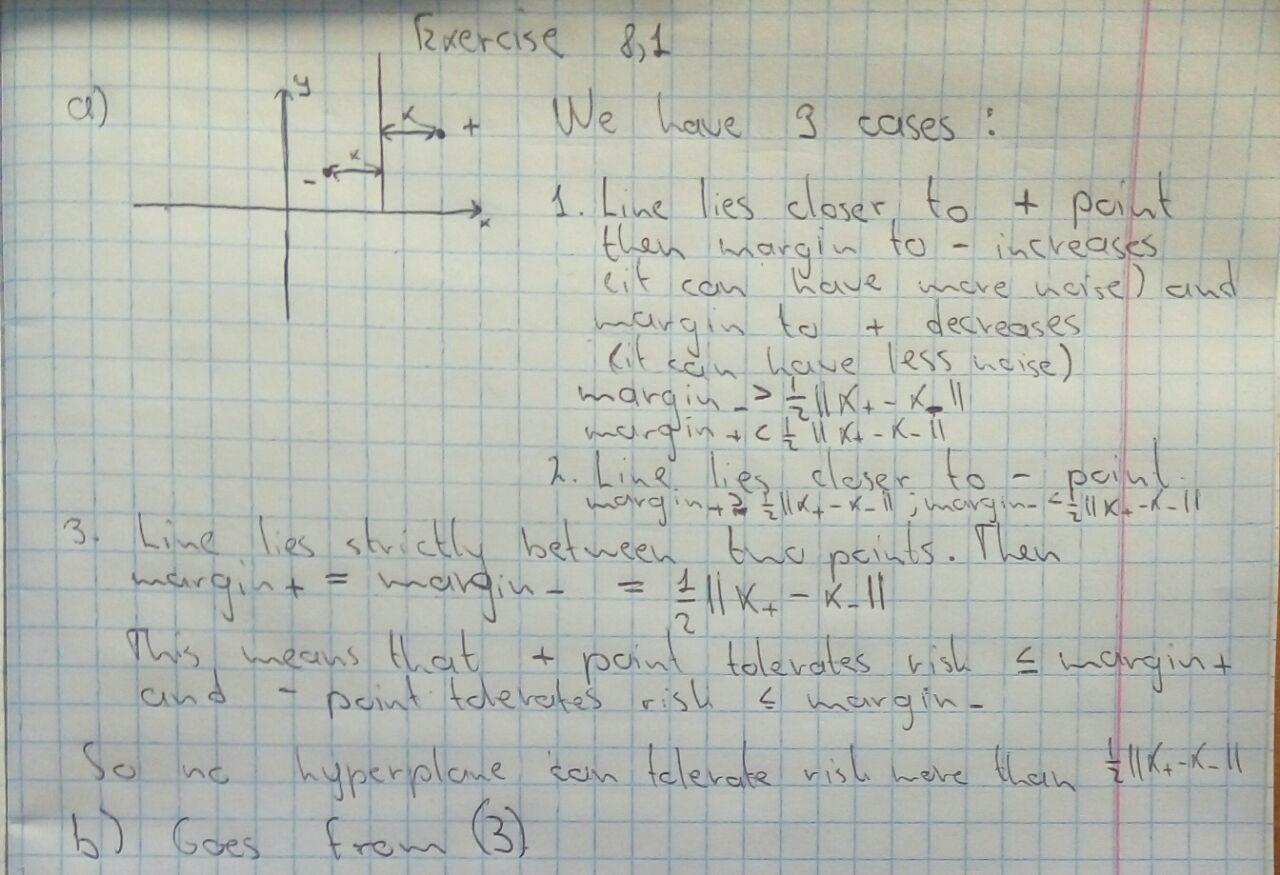 Exercise 8,1
a)
y
x
+
x
-
x
We have 3 cases :
1. Line lies closer to + point
then margin to - increases
(it can have more noise) and
margin to + decreases
(it can have less noise)
margin₋ > ½||x₊ - x₋||
margin₊ < ½||x₊ - x₋||
2. Line lies closer to - point.
margin₊ > ½||x₊ - x₋|| ; margin₋ < ½||x₊ - x₋||
3. Line lies strictly between two points. Then
margin₊ = margin₋ = ½||x₊ - x₋||
This means that + point tolerates risk ≤ margin₊
and - point tolerates risk ≤ margin₋
So no hyperplane can tolerate risk more than ½||x₊ - x₋||
b) Goes from (3)